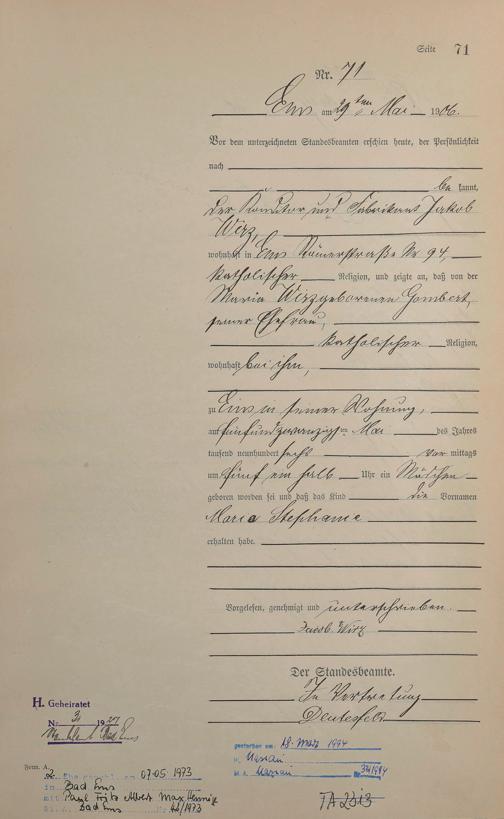 Seite 71
Nr. 71
Ems am 29ten Mai 1906.
Vor dem unterzeichneten Standesbeamten erschien heute, der Persönlichkeit
nach
be kannt,
der Konditor und Fabrikant Jakob
Wirz,
wohnhaft in Ems Römerstraße Nr 94,
katholischer Religion, und zeigte an, daß von der
Maria Wirz geborenen Gombert,
seiner Ehefrau,
katholischer Religion,
wohnhaft bei ihm,
zu Ems in seiner Wohnung,
am fünfundzwanzigsten Mai des Jahres
tausend neunhundert sechs vor mittags
um fünf ein halb Uhr ein Mädchen
geboren worden sei und daß das Kind die Vornamen
Maria Stephanie
erhalten habe.
Vorgelesen, genehmigt und unterschrieben.
Jacob Wirz
Der Standesbeamte.
In Vertretung
H. Geheiratet
Nr. 3 1927
gestorben am: 18. März 1994
07.05 1973
in Bad Ems
mit Paul Fritz Albert Max
Bad Ems